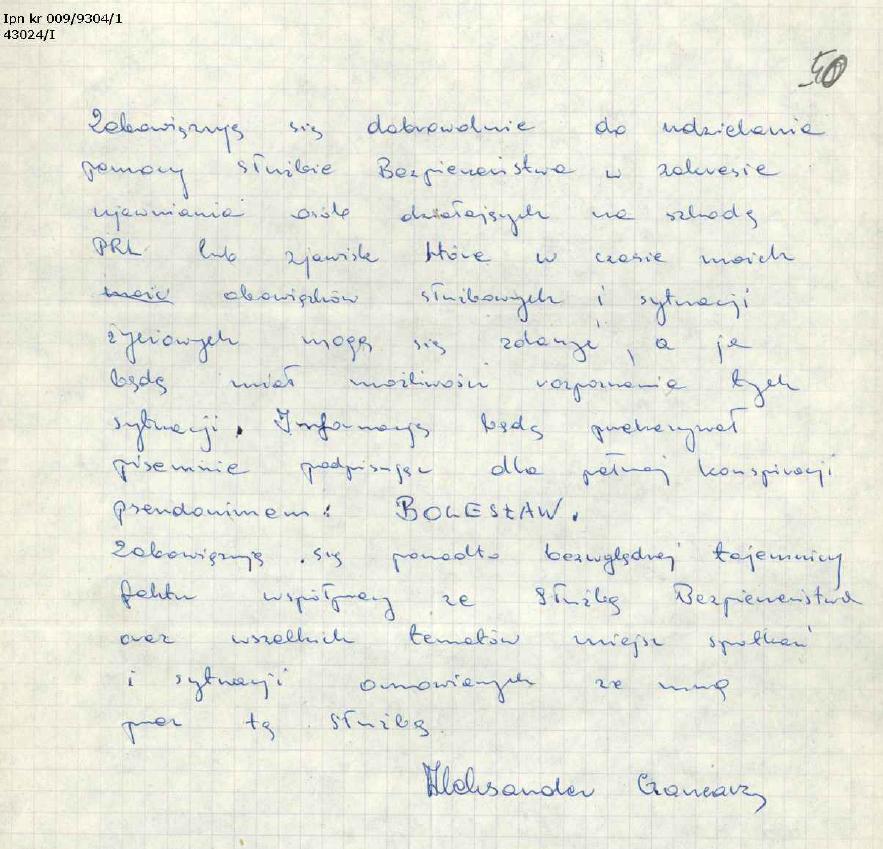 Ipn kr 009/9304/1
43024/I
50
Zobowiązuję się dobrowolnie do udzielania
pomocy Służbie Bezpieczeństwa w zakresie
ujawniania osób działających na szkodę
PRL lub zjawisk które w czasie moich
obowiązków służbowych i sytuacji
życiowych mogą się zdarzyć, a ja
będę miał możliwości rozpoznania tych
sytuacji. Informację będę przekazywał
pisemnie podpisując dla pełnej konspiracji
pseudonimem: BOLESŁAW.
Zobowiązuję się ponadto bezwględnej tajemnicy
faktu współpracy ze Służbą Bezpieczeństwa
oraz wszelkich tematów miejsc spotkań
i sytuacji omowianych ze mną
przez tą Służbę
Aleksander